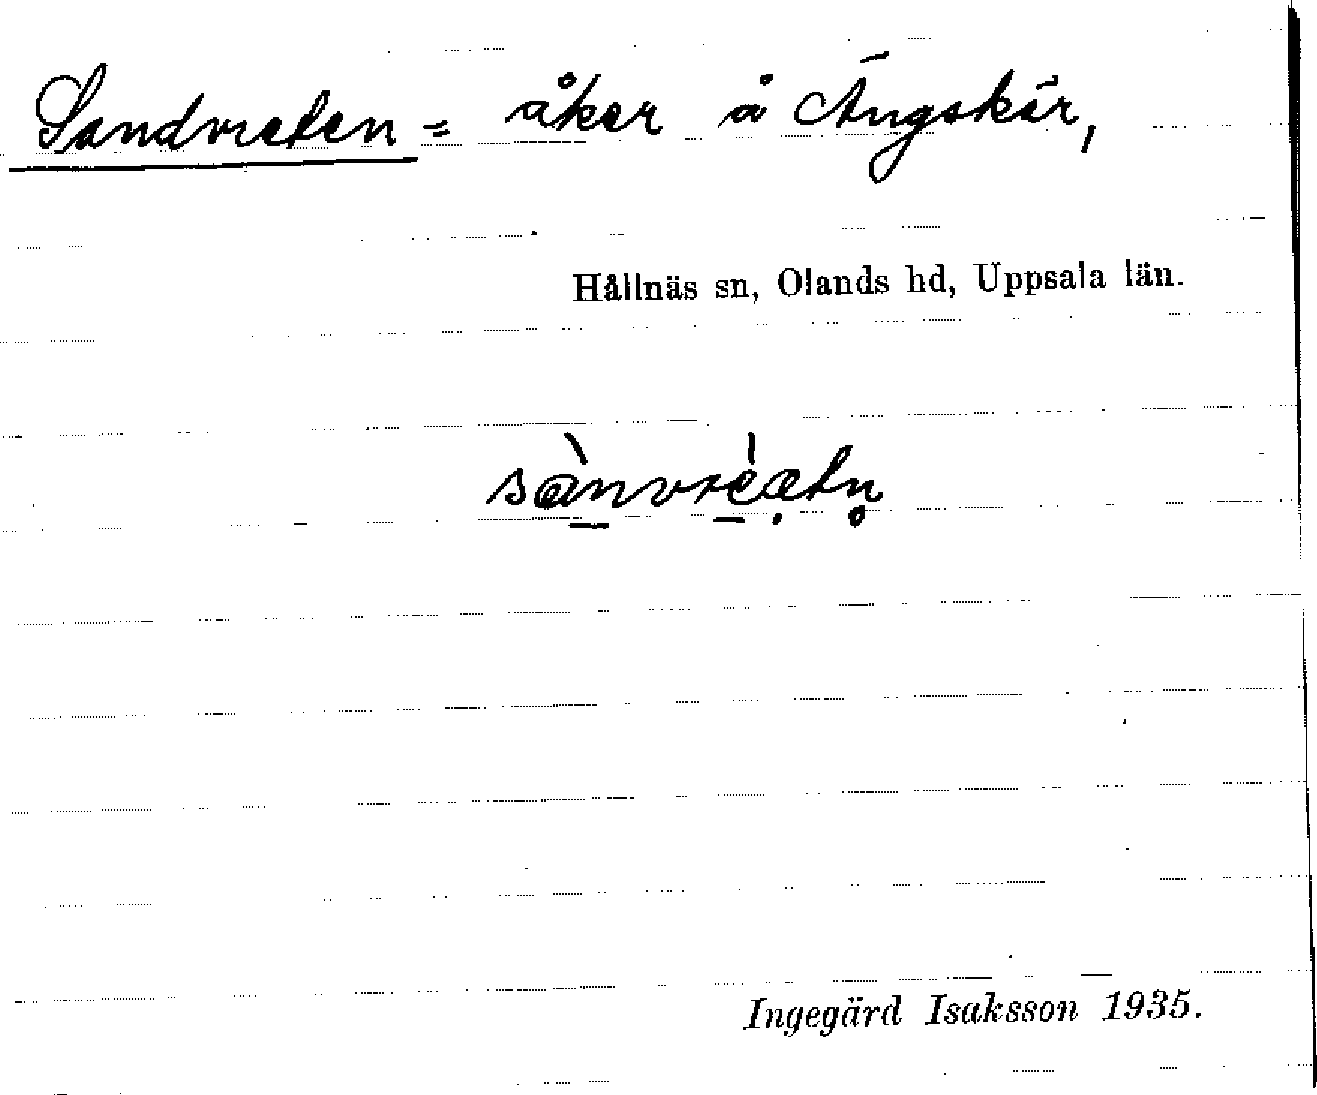 Sandvreten = åker å Ängskär,
Hållnäs sn, Olands hd, Uppsala län.
Ingegärd Isaksson 1935.